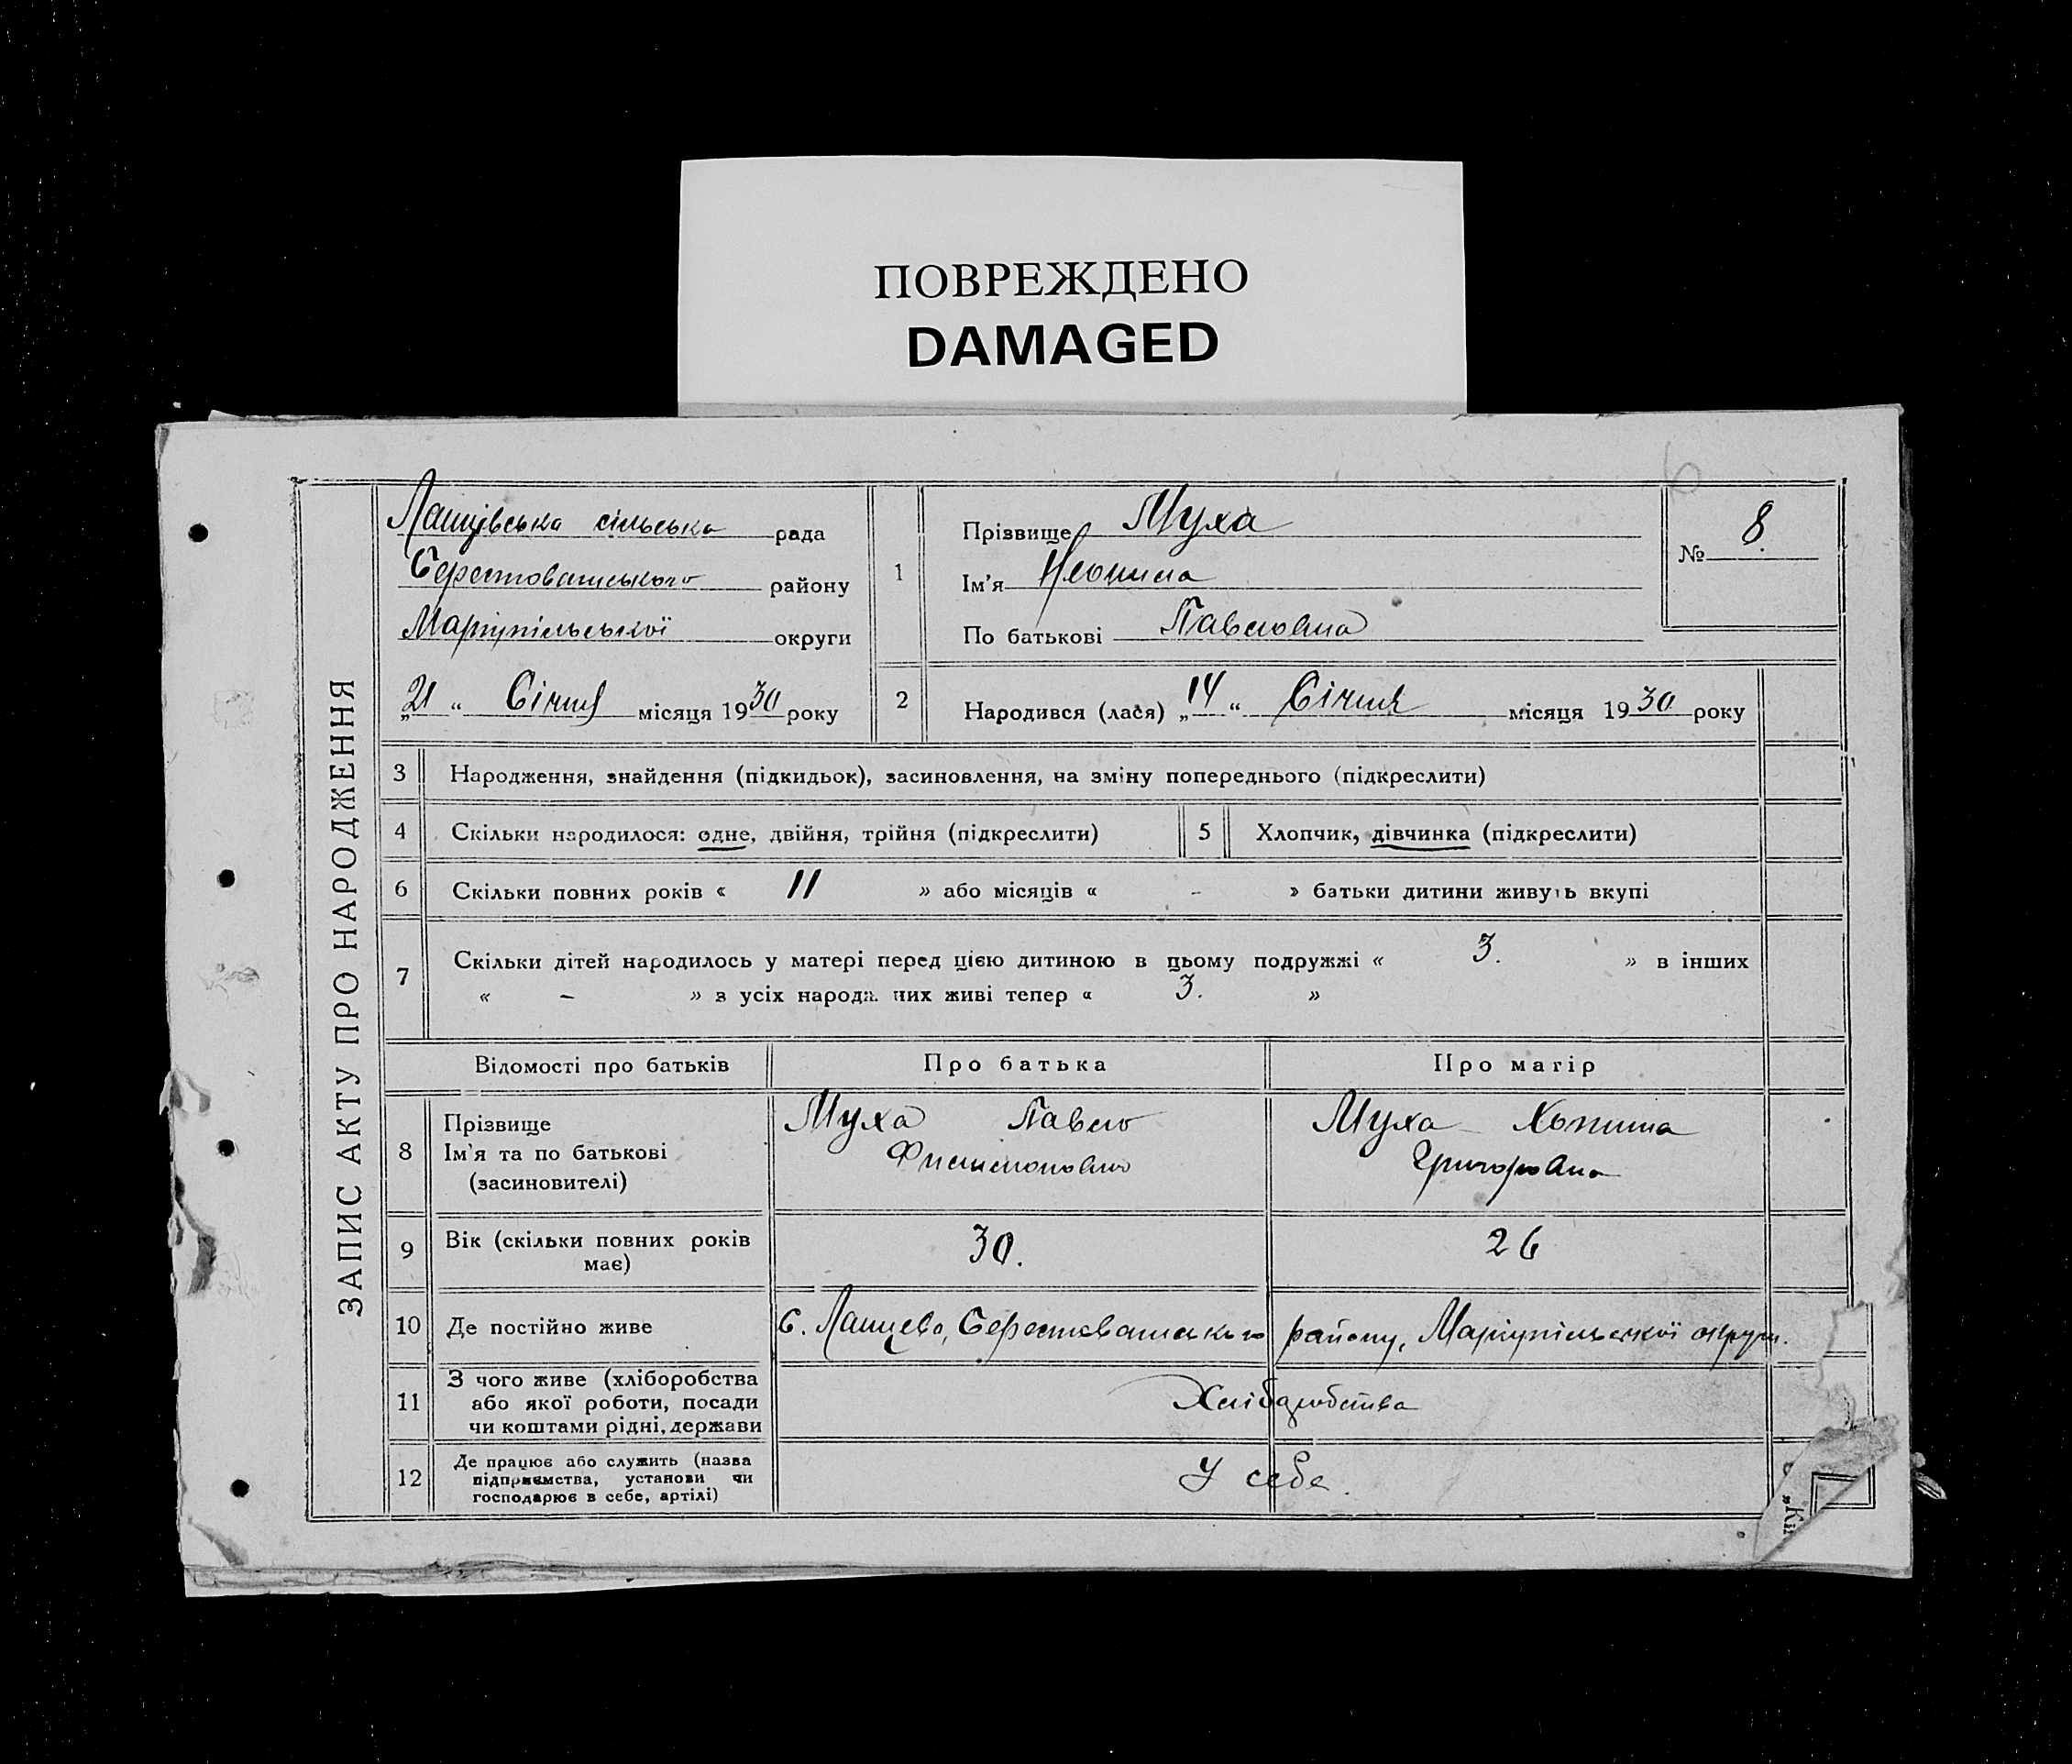 ПОВРЕЖДЕНО
DAMAGED
6
ЗАПИС АКТУ ПРО НАРОДЖЕННЯ
сільська рада
району
Маріупільської округи
„21“ Січня місяця 1930 року
1
Прізвище Муха
Ім'я
По батькові Павловна
№ 8.
2
Народився (лася) „14“ Січня місяця 1930 року
3 Народження, знайдення (підкидьок), засиновлення, на зміну попереднього (підкреслити)
4 Скільки народилося: одне, двійня, трійня (підкреслити)
5 Хлопчик, дівчинка (підкреслити)
6 Скільки повних років « 11 » або місяців « - » батьки дитини живуть вкупі
7 Скільки дітей народилось у матері перед цією дитиною в цьому подружжі « 3. » в інших
« - » з усіх народж. них живі тепер « 3. »
Відомості про батьків Про батька Про матір
8 Прізвище
Ім'я та по батькові
(засиновителі)
Муха Павло
Муха
Григоровна
9 Вік (скільки повних років
має)
30.
26
10 Де постійно живе
с. району, Маріупільської округи.
11 З чого живе (хліборобства
або якої роботи, посади
чи коштами рідні, держави
Хліборобства
12 Де працює або служить (назва
підприємства, установи чи
господарює в себе, артілі)
У себе.
„Ки